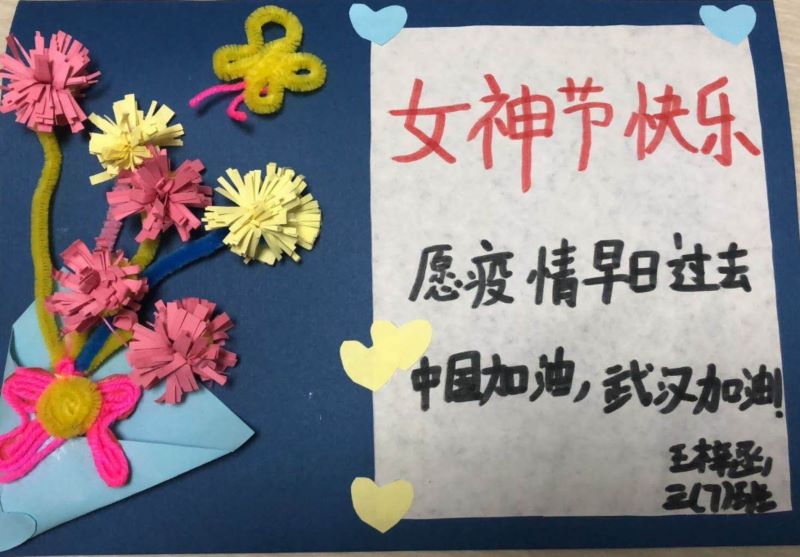 女神节快乐
愿疫情早日过去
中国加油,武汉加油!
王梓丞,
三(7)班